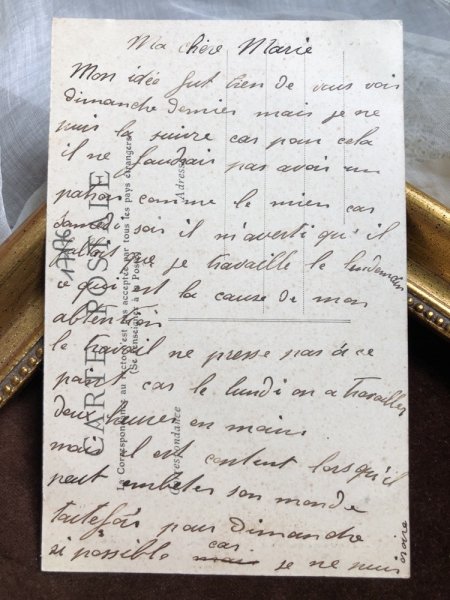 Ma chère Marie
Mon idée fut bien de vous voir
dimanche dernier mais je ne
puis la suivre car pour cela
il ne faudrait pas avoir un
patron comme le mien car
samedi soir il m'averti qu'il
fallait que je travaille le lendemain
ce qui est la cause de mon
abtention
le travail ne presse pas à ce
point car le lundi on a travailler
deux heures en mains
mais il est content lorsqu'il
peut embeter son monde
toutefois pour Dimanche
si possible car je ne puis
CARTE POSTALE
La Correspondance au recto n'est pas acceptée par tous les pays étrangers
(Se renseigner à la Poste)
Correspondance
Adresse